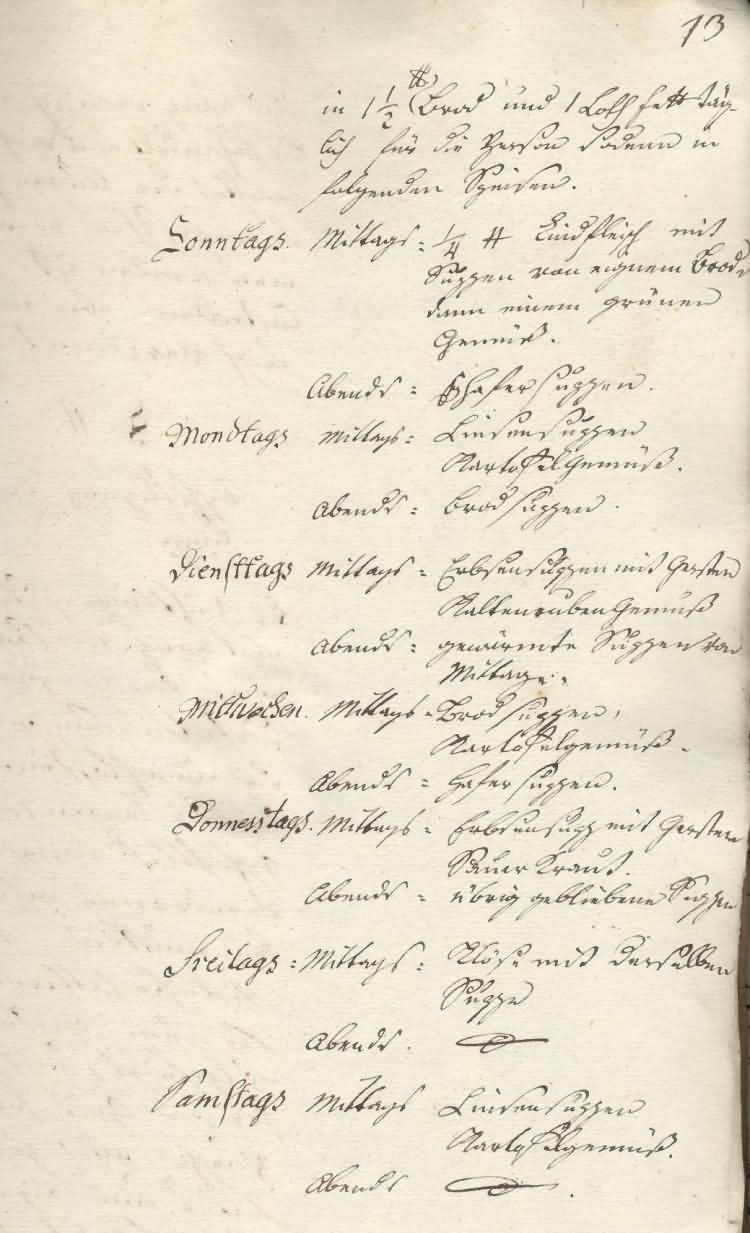 13
in 1 1/2 ℔ Brod und 1 Loth fett täg-
lich für die Person sodann in
folgenden Speisen.
Sonntags. Mittags = 1/4 ℔ Rindfleisch mit
Suppen von eignem Brod
dann einem grünen
Gemüß.
Abends = Hafersuppen.
Mondtags Mittags = Linsensuppen
Kartofelgemüß.
Abends = Brodsuppen.
Diensttags Mittags = Erbsensuppen mit Gersten
Gemüß
Abends = gewärmte Suppen von
Mittag.
Mittwochen. Mittags = Brodsuppen,
Kartofelgemüß.
Abends = Hafersuppen.
Donnesstags. Mittags = Erbsensupp mit Gersten
Sauer Kraut.
Abends = übrig gebliebene Suppen
Freitags = Mittags = Klöse mit derselben
Suppe
Abends.
Samstags Mittags Linsensuppen
Kartofelgemüß.
Abends